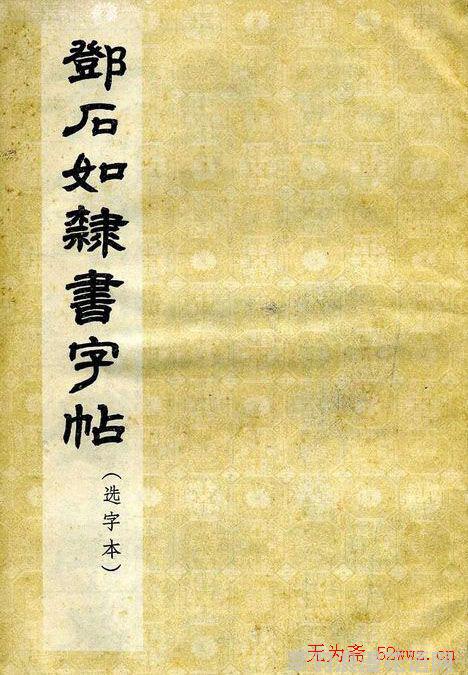 鄧石如隸書字帖
（选字本）
无为斋 52wwz.cn